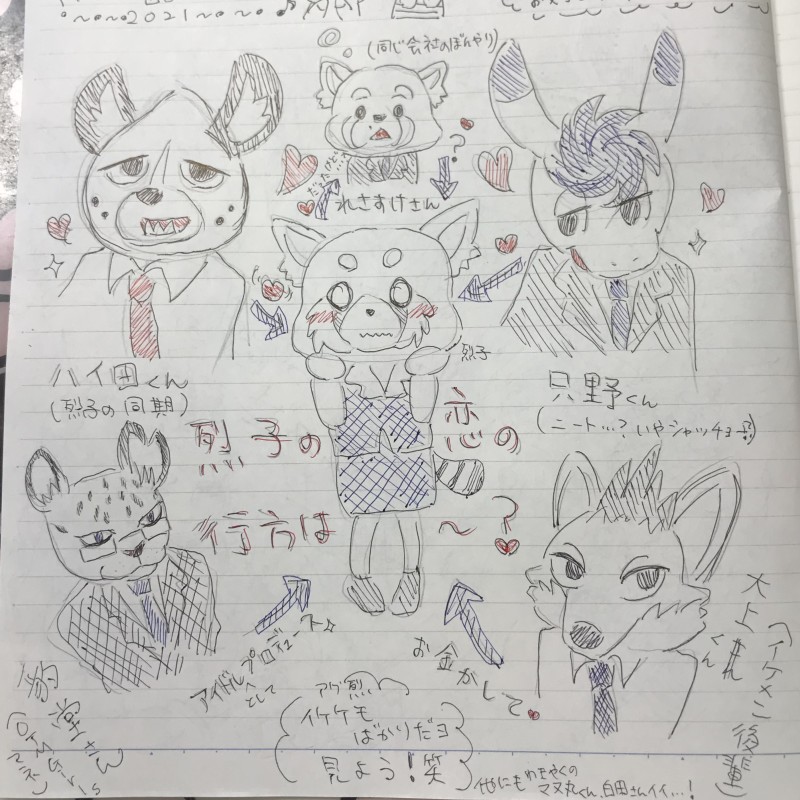 2021
(同じ会社のぼんやり)
?
れさすけさん
烈子
ハイ田くん
(烈子の同期)
只野くん
(ニート…?いやシャッチョ-!?)
烈子の恋の
行方は〜?
アイドルプロデュース
として
お金かして
大上くん
(イケメン後輩)
豹堂さん
アグ烈
イケケモ
ばかりだヨ
見よう!笑
他にもわきやくの
マヌ丸くん、白田さんイイ…!